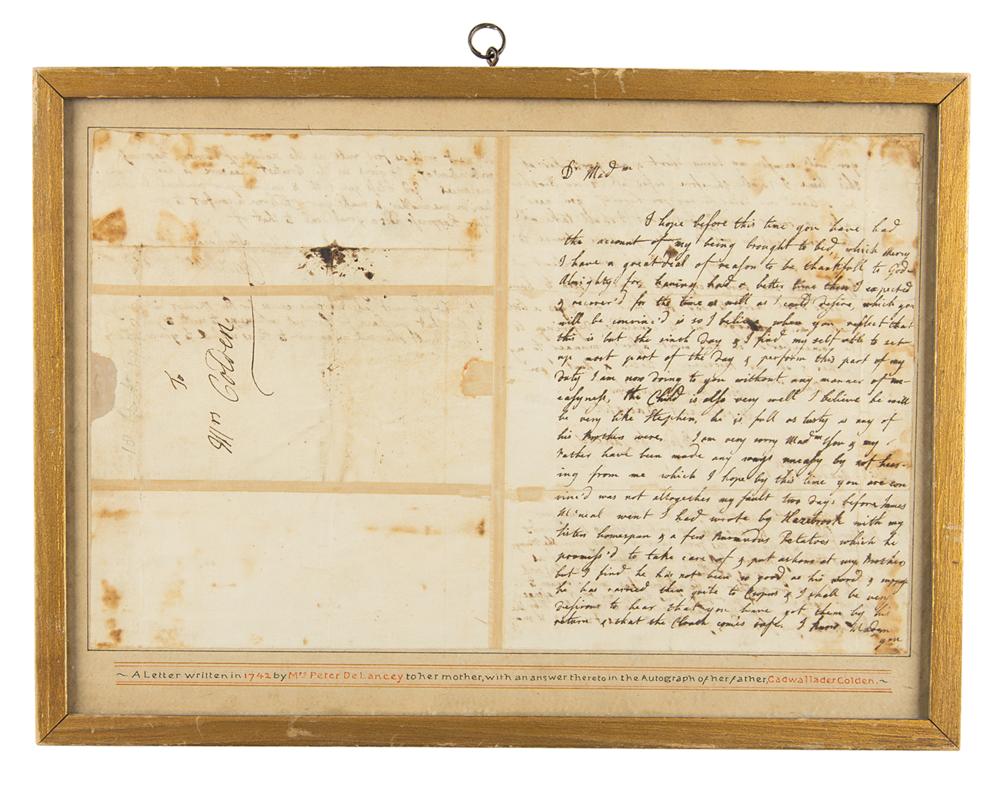 To
Mrs Colden
Dr Madm
I hope before this time you have had
the account of my being brought to bed which mercy
I have a great deal of reason to be thankfull to God
Almighty for having had a better time then I expected
& recover'd for the time as well as I could desire which you
will be convinc'd is so I believe when you reflect that
this is but the ninth Day & I find my self able to set
up most part of the Day & perform this part of my
Duty I am now doing to you without any manner of un-
easyness, the Child is also very well I believe he will
be very like Stephen, he is full as lusty as any of
his Brothers were. I am very sorry Madm you & my
Father have been made any ways uneasy by not hear-
ing from me which I hope by this time you are con
vinc'd was not altogether my fault two days before James
McNeal went I had wrote by Hazebrook with my
Sisters homespun & a few Burmudus Potatoes which he
promiss'd to take care of & put ashore at my Brothers
but I find he has not been so good as his word &
he has carried them quite to & I shall be very
desirous to hear that you have got them by his
return & that the Cloath comes safe. I know Madam
you
~ A Letter written in 1742 by Mrs Peter DeLancey to her mother, with an answer thereto in the Autograph of her father, Cadwallader Colden. ~